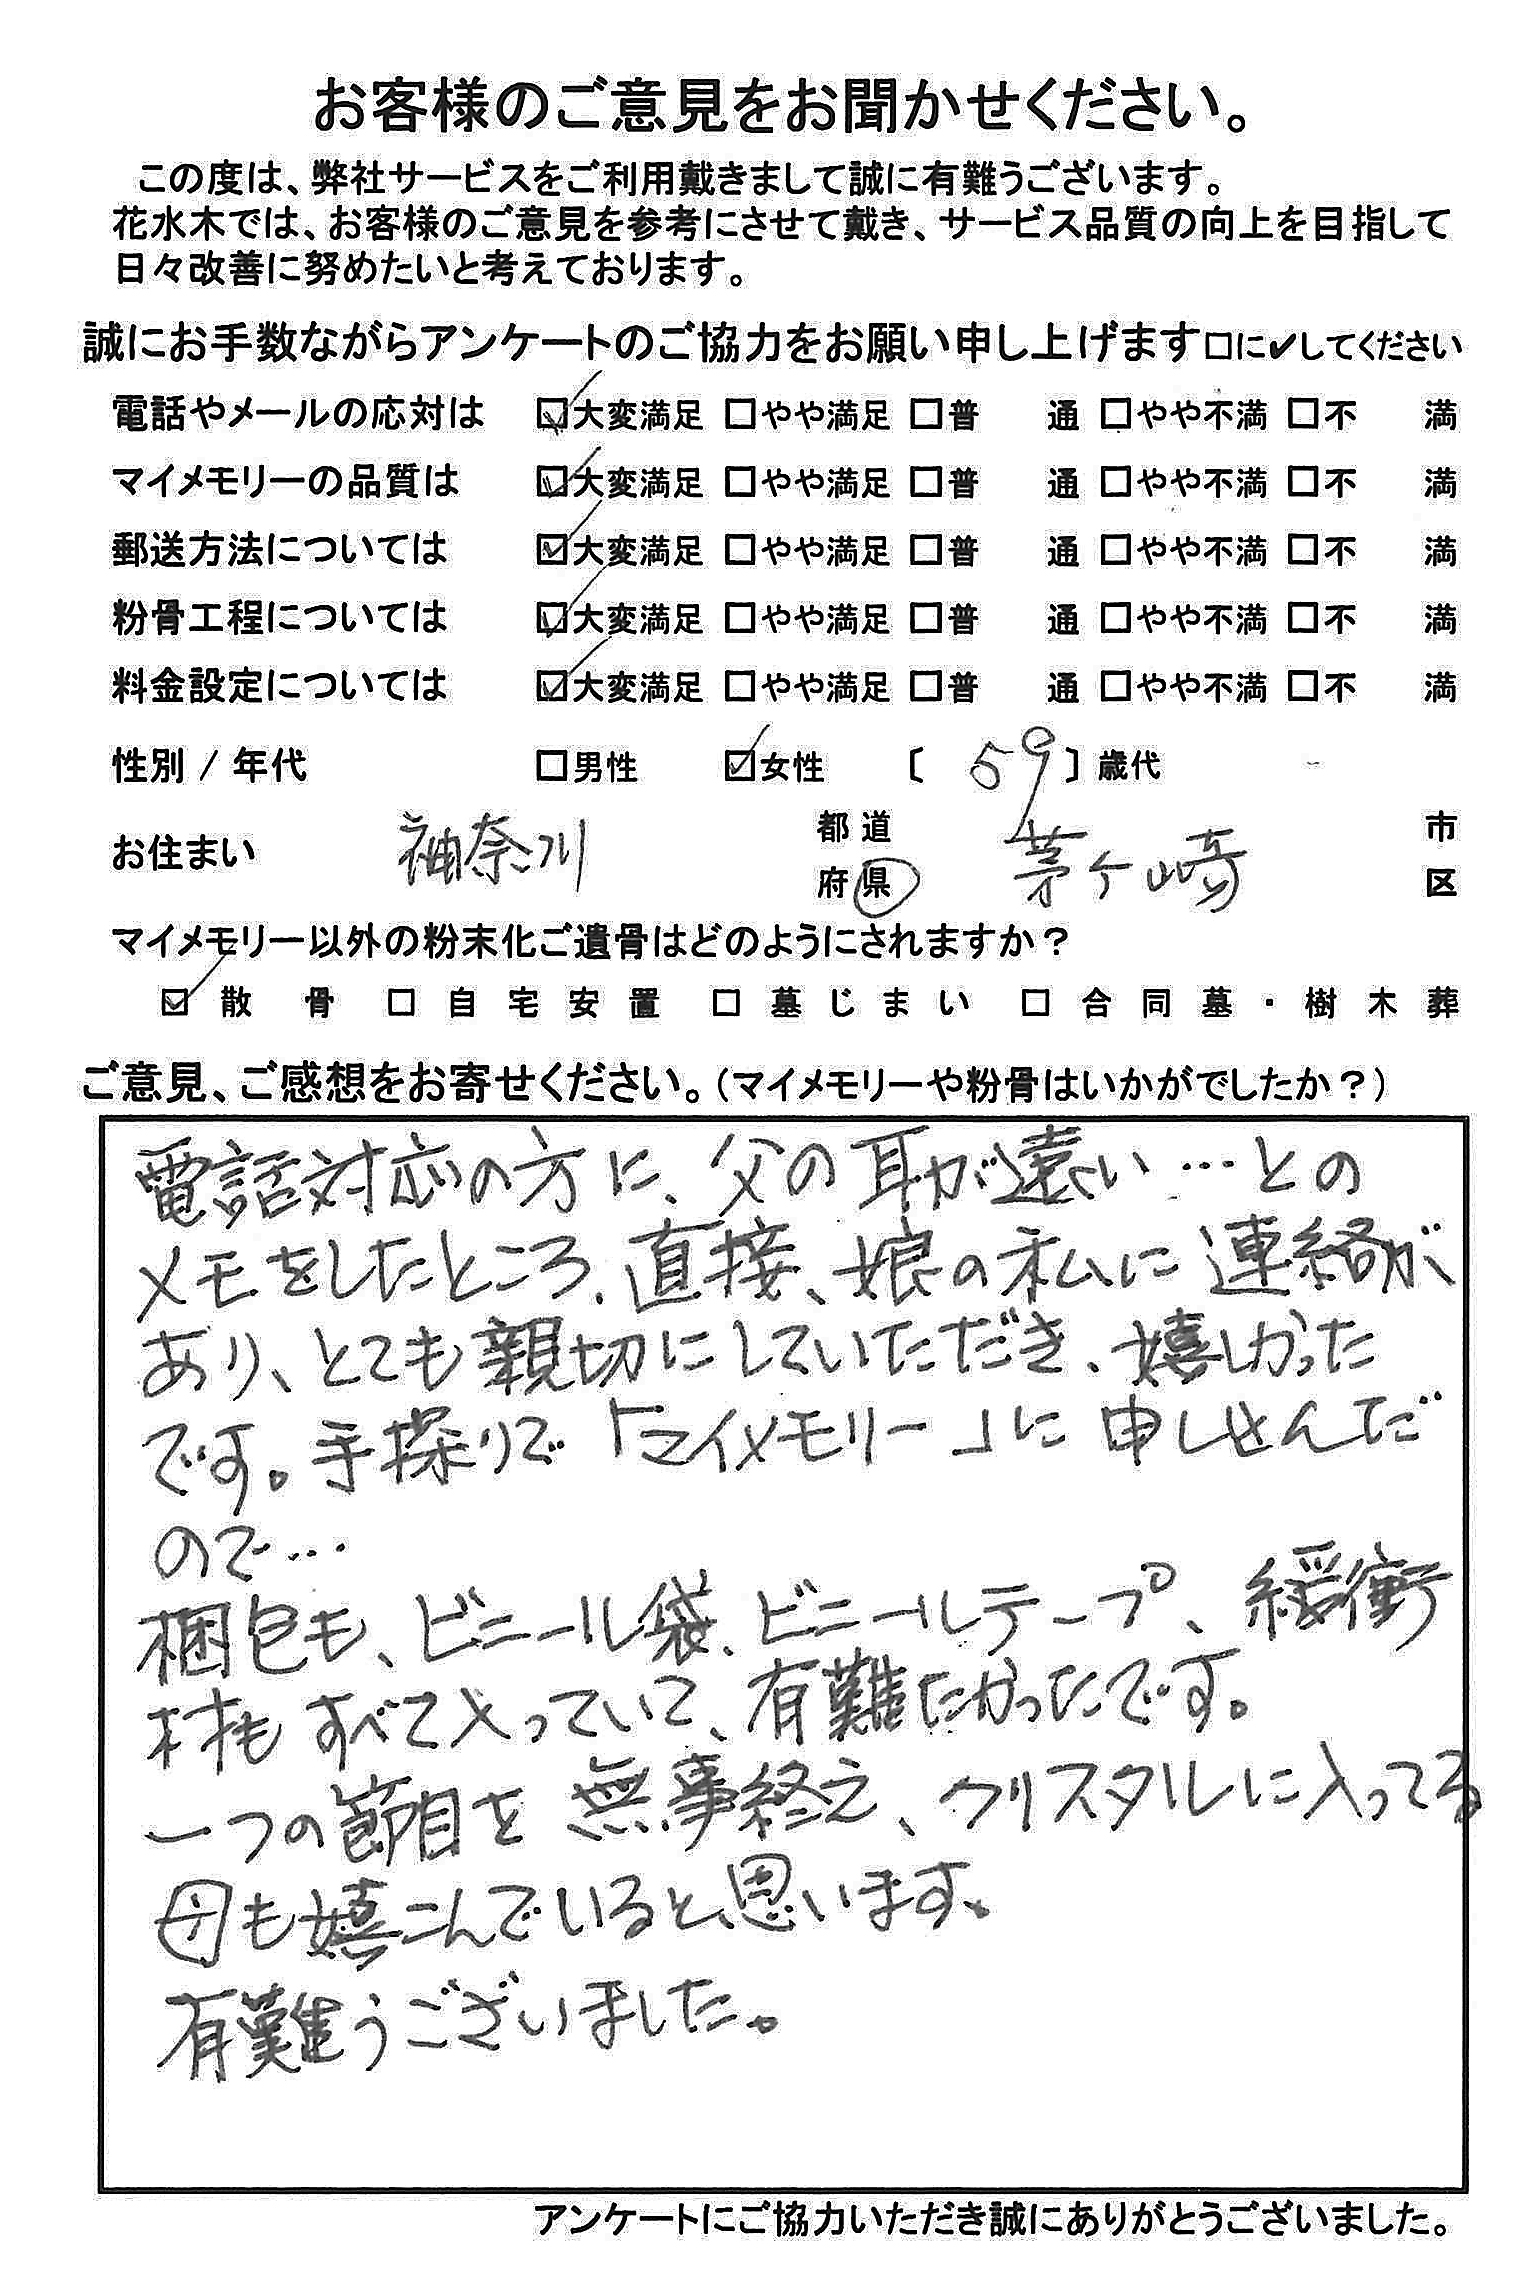 お客様のご意見をお聞かせください。
この度は、弊社サービスをご利用戴きまして誠に有難うございます。
花水木では、お客様のご意見を参考にさせて戴き、サービス品質の向上を目指して
日々改善に努めたいと考えております。
誠にお手数ながらアンケートのご協力をお願い申し上げます□に✔してください
電話やメールの応対は ☑大変満足 □やや満足 □普 通 □やや不満 □不 満
マイメモリーの品質は ☑大変満足 □やや満足 □普 通 □やや不満 □不 満
郵送方法については ☑大変満足 □やや満足 □普 通 □やや不満 □不 満
粉骨工程については ☑大変満足 □やや満足 □普 通 □やや不満 □不 満
料金設定については ☑大変満足 □やや満足 □普 通 □やや不満 □不 満
性別 / 年代 □男性 ☑女性 〔 59 〕歳代
お住まい 神奈川 都道府県 茅ヶ崎 市区
マイメモリー以外の粉末化ご遺骨はどのようにされますか？
☑ 散骨 □ 自宅安置 □ 墓じまい □ 合同墓・樹木葬
ご意見、ご感想をお寄せください。（マイメモリーや粉骨はいかがでしたか？）
電話対応の方に、父の耳が遠い…との
メモをしたところ、直接、娘の私に連絡が
あり、とても親切にしていただき、嬉しかった
です。手探りで「マイメモリー」に申し込んだ
ので…
梱包も、ビニール袋、ビニールテープ、緩衝
材もすべて入っていて、有難たかったです。
一つの節目を無事終え、クリスタルに入ってる
母も嬉こんでいると思います。
有難うございました。
アンケートにご協力いただき誠にありがとうございました。